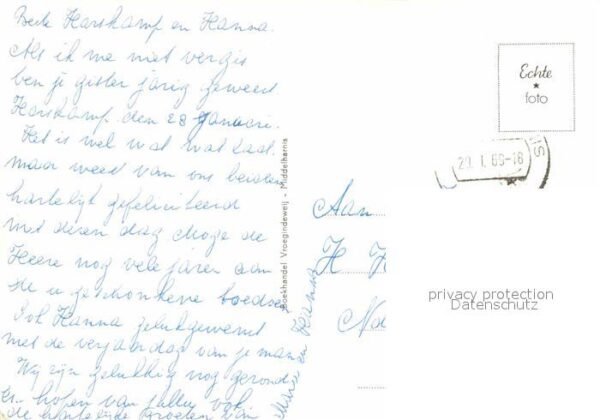 Beste Harskamp en Hanna.
Als ik me niet vergis
ben je gister jarig geweest
Harskamp. den 28 Januari.
Het is wel wat wat laat.
maar weest van ons beiden
hartelijk gefeliciteerd
met dezen dag Moge de
Heere nog vele jaren aan
de u geschonkene
Ook Hanna gelukgewenst
met de verjaardag van je man en
Wij zijn gelukkig nog gezond
En hopen van jullie ook
de hartelijke groeten van
Marie en Hanna
Boekhandel Vroegindeweij - Middelharnis
Echte
foto
29. I. 65-18
NIS
Aan
H H
No
privacy protection
Datenschutz